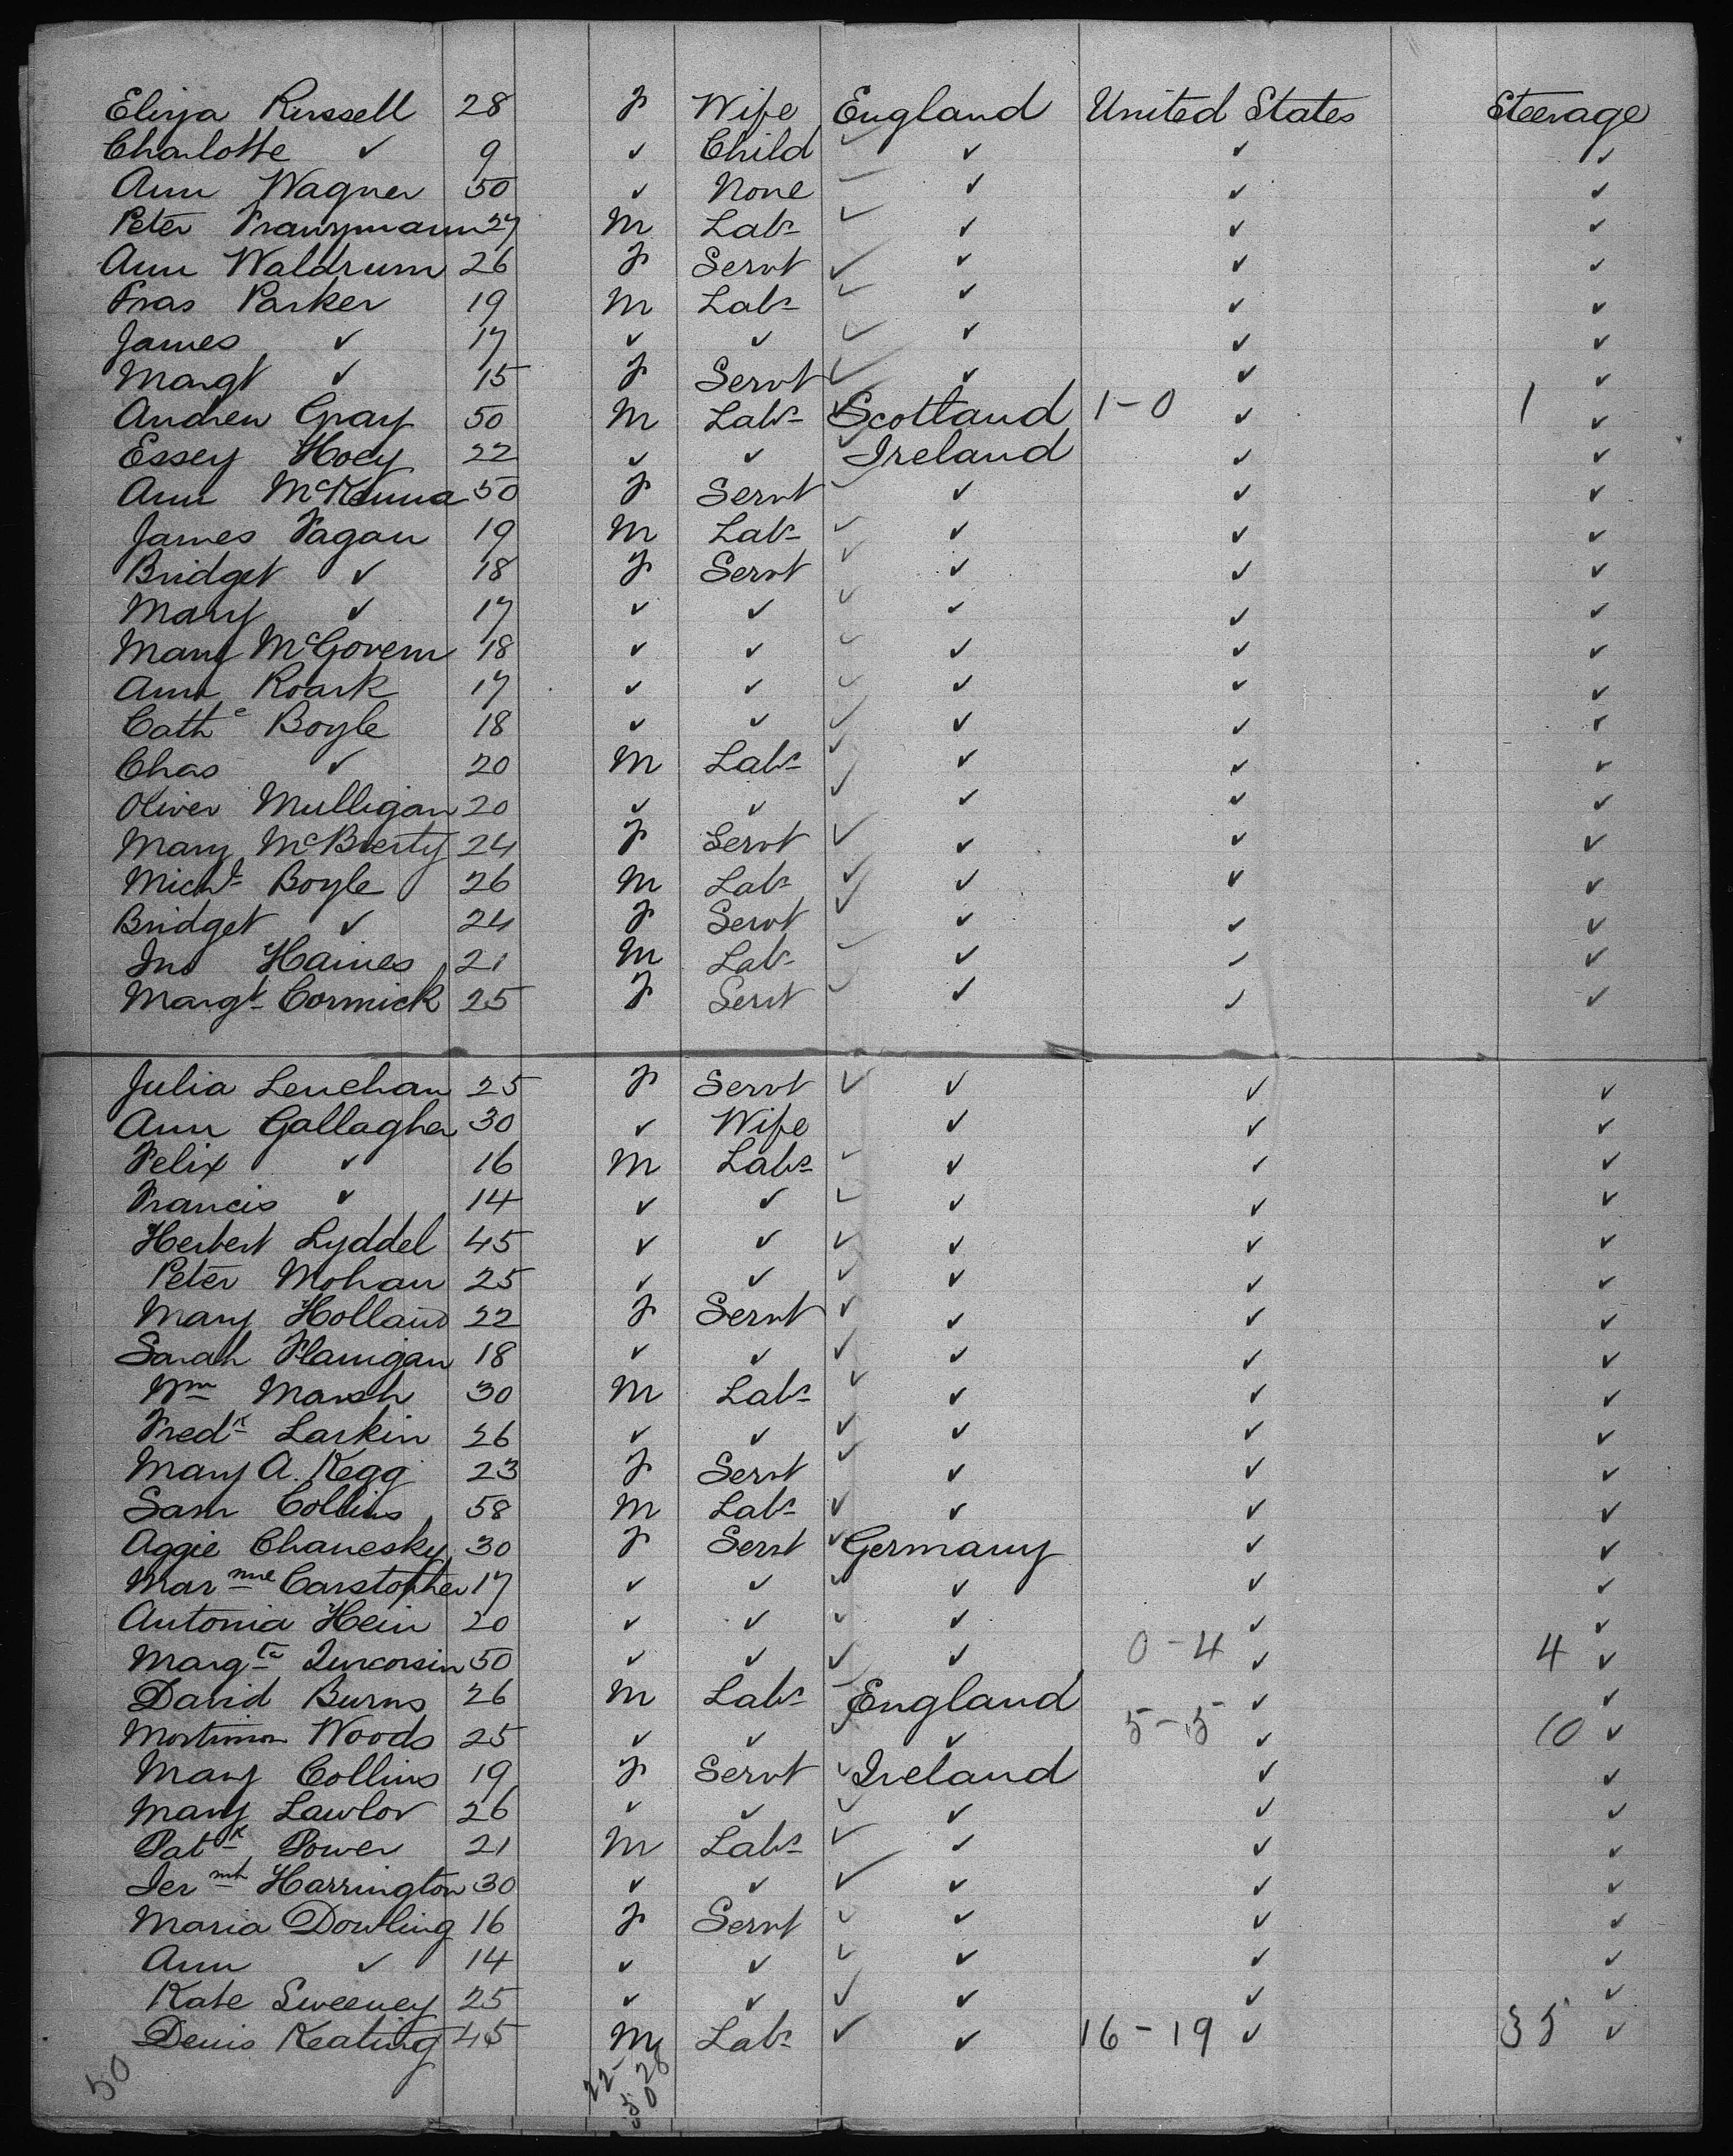 Eliza Russell 28 F Wife England United States Steerage
Charlotte ✓ 9 ✓ Child ✓ ✓ ✓ ✓
Ann Wagner 50 ✓ None ✓ ✓ ✓ ✓
Peter Franzmann 27 M Labr ✓ ✓ ✓ ✓
Ann Waldrum 26 F Servt ✓ ✓ ✓ ✓
Fras Parker 19 M Labr ✓ ✓ ✓ ✓
James ✓ 17 ✓ ✓ ✓ ✓ ✓ ✓
Margt ✓ 15 F Servt ✓ ✓ ✓ ✓
Andrew Gray 50 M Labr ✓ Scotland 1-0 ✓ 1 ✓
Essey Hoey 22 ✓ ✓ ✓ Ireland ✓ ✓
Ann McKenna 50 F Servt ✓ ✓ ✓ ✓
James Fagan 19 M Labr ✓ ✓ ✓ ✓
Bridget ✓ 18 F Servt ✓ ✓ ✓ ✓
Mary ✓ 17 ✓ ✓ ✓ ✓ ✓ ✓
Mary McGovern 18 ✓ ✓ ✓ ✓ ✓ ✓
Ann Roark 17 ✓ ✓ ✓ ✓ ✓ ✓
Cathe Boyle 18 ✓ ✓ ✓ ✓ ✓ ✓
Chas ✓ 20 M Labr ✓ ✓ ✓ ✓
Oliver Mulligan 20 ✓ ✓ ✓ ✓ ✓ ✓
Mary McBrerty 24 F Servt ✓ ✓ ✓ ✓
Michl Boyle 26 M Labr ✓ ✓ ✓ ✓
Bridget ✓ 24 F Servt ✓ ✓ ✓ ✓
Jno Haines 21 M Labr ✓ ✓ ✓ ✓
Margt Cormick 25 F Servt ✓ ✓ ✓ ✓
Julia Lenehan 25 F Servt ✓ ✓ ✓ ✓
Ann Gallagher 30 ✓ Wife ✓ ✓ ✓
Felix ✓ 16 M Labr ✓ ✓ ✓ ✓
Francis ✓ 14 ✓ ✓ ✓ ✓ ✓ ✓
Herbert Lyddel 45 ✓ ✓ ✓ ✓ ✓ ✓
Peter Mohan 25 ✓ ✓ ✓ ✓ ✓ ✓
Mary Holland 22 F Servt ✓ ✓ ✓ ✓
Sarah Flanigan 18 ✓ ✓ ✓ ✓ ✓ ✓
Wm Marsh 30 M Labr ✓ ✓ ✓ ✓
Fredk Larkin 26 ✓ ✓ ✓ ✓ ✓ ✓
Mary A. Kegg 23 F Servt ✓ ✓ ✓ ✓
Sam Collins 58 M Labr ✓ ✓ ✓ ✓
Aggie Chanesky 30 F Servt ✓ Germany ✓ ✓
Marnne Carstopher 17 ✓ ✓ ✓ ✓ ✓ ✓
Antonia Hein 20 ✓ ✓ ✓ ✓ ✓ ✓
Margta 50 ✓ ✓ ✓ ✓ 0-4 ✓ 4 ✓
David Burns 26 M Labr ✓ England ✓ ✓
Mortimor Woods 25 ✓ ✓ ✓ ✓ 5-5 ✓ 10 ✓
Mary Collins 19 F Servt ✓ Ireland ✓ ✓
Mary Lawlor 26 ✓ ✓ ✓ ✓ ✓ ✓
Patk Power 21 M Labr ✓ ✓ ✓ ✓
Jermh Harrington 30 ✓ ✓ ✓ ✓ ✓ ✓
Maria Dowling 16 F Servt ✓ ✓ ✓ ✓
Ann ✓ 14 ✓ ✓ ✓ ✓ ✓ ✓
Kate Sweeney 25 ✓ ✓ ✓ ✓ ✓ ✓
Denis Keating 45 M Labr ✓ ✓ 16-19 ✓ 35 ✓
50 22-28
50